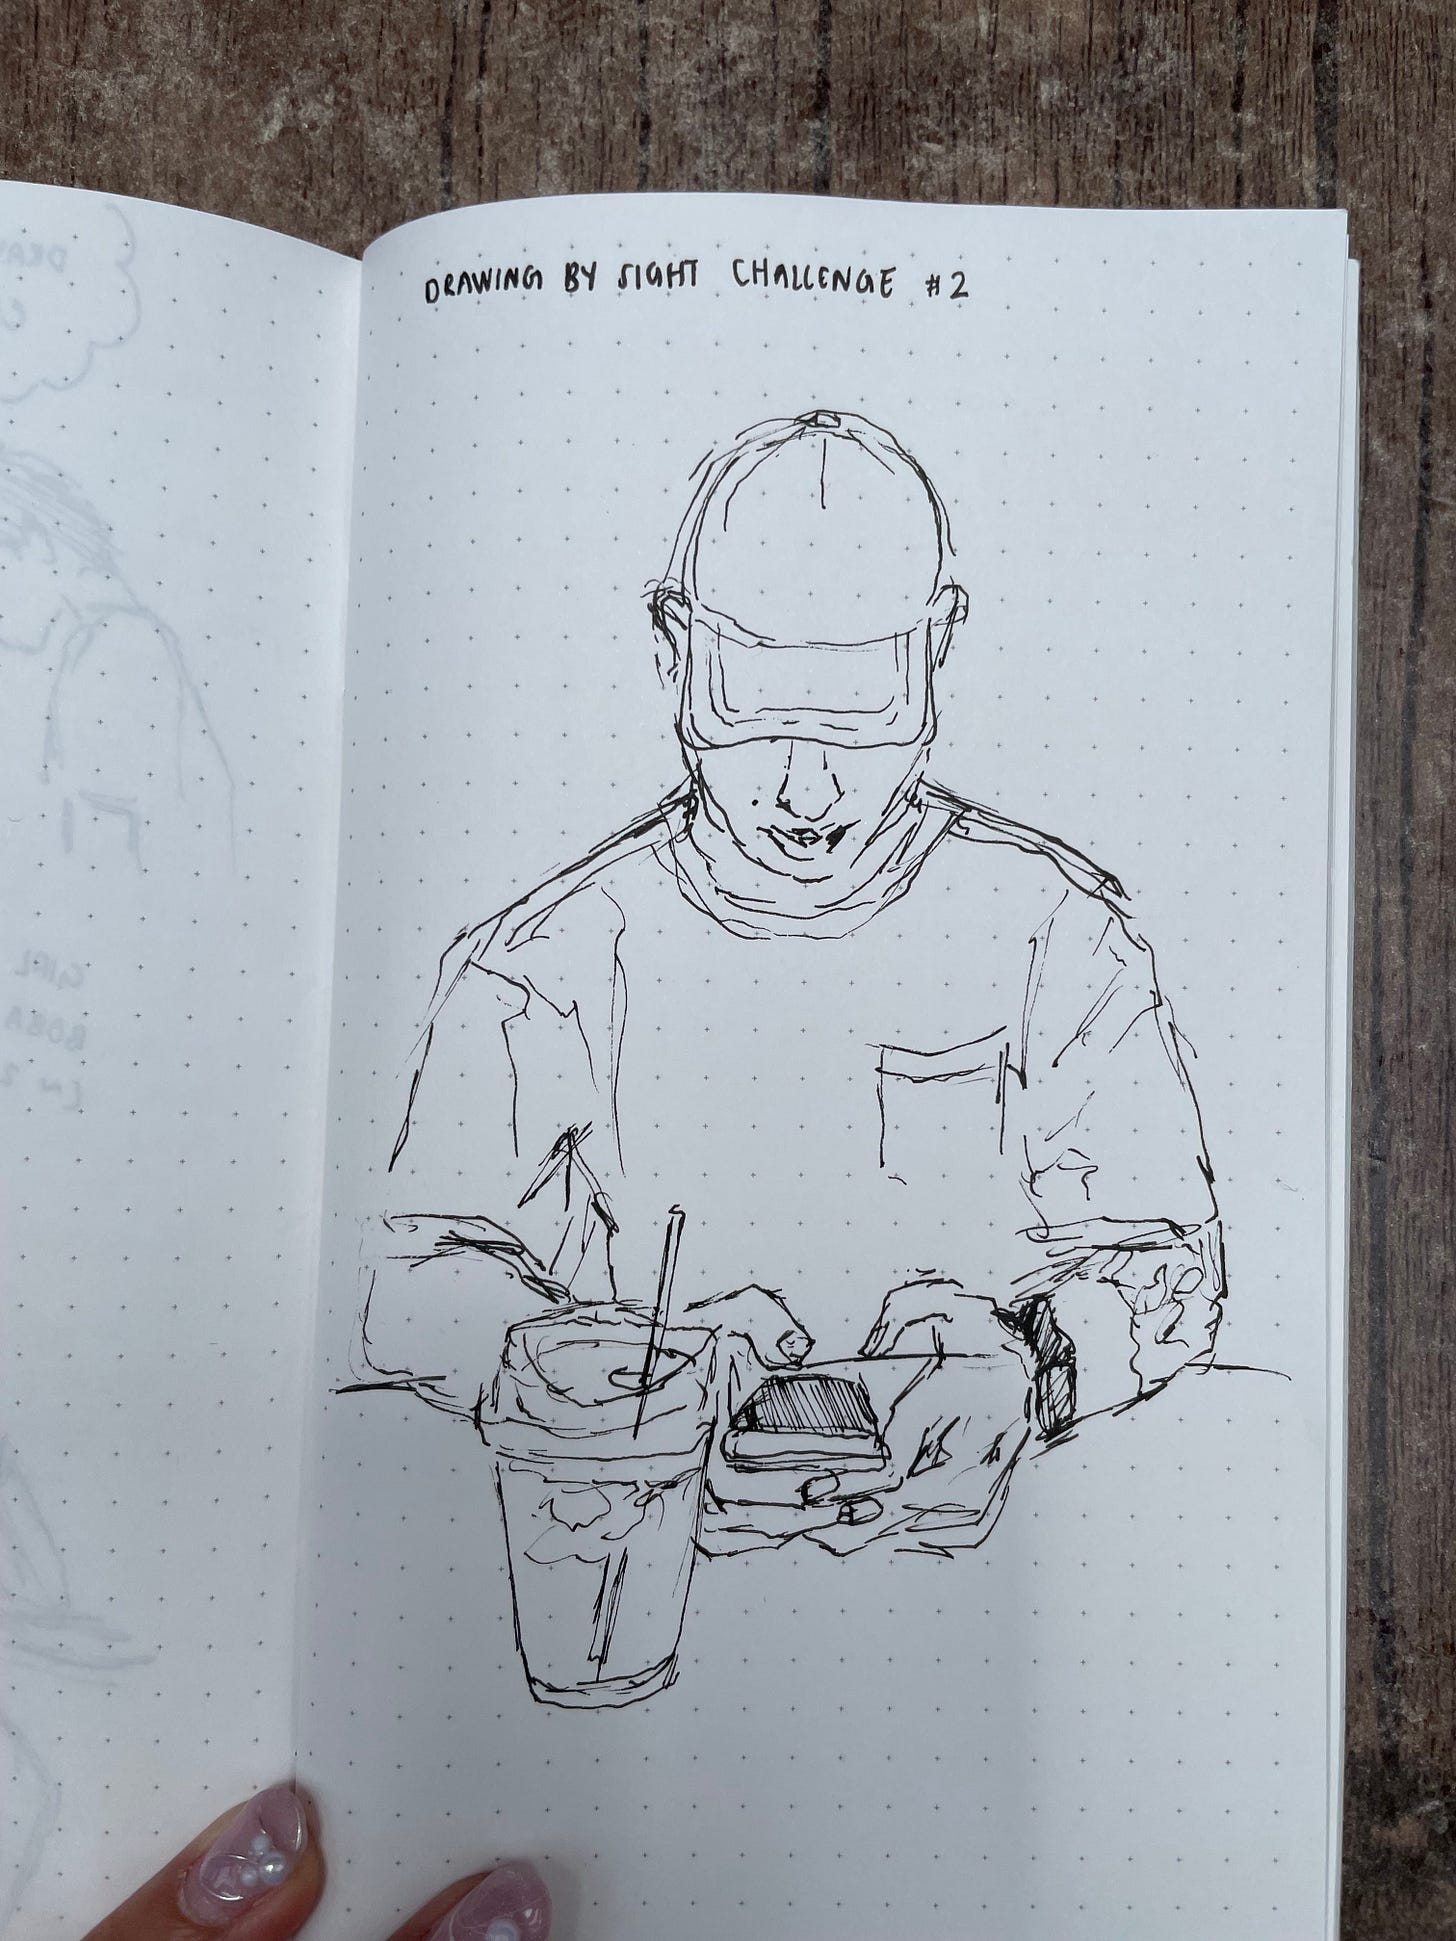 DRAWING BY SIGHT CHALLENGE #2
GIRL
BOBA